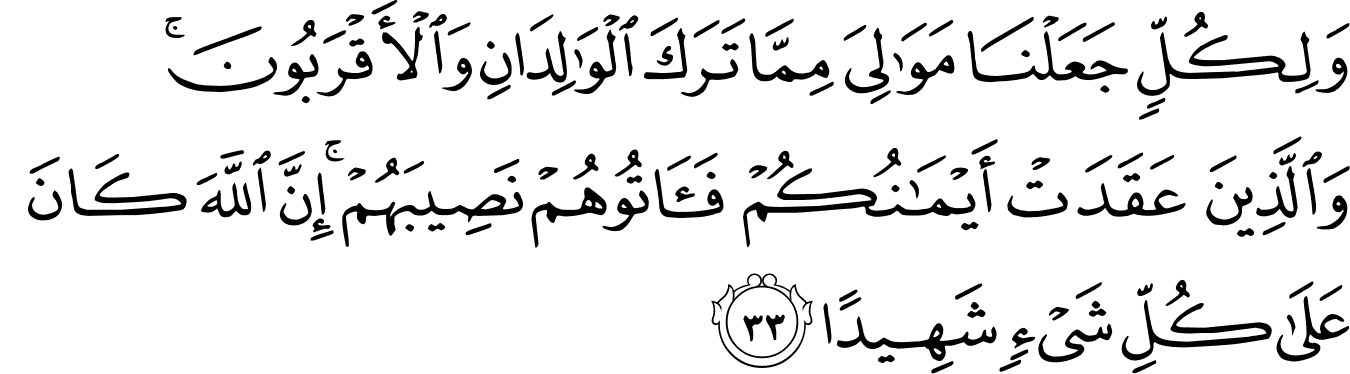 وَلِكُلٍّ جَعَلْنَا مَوَٰلِىَ مِمَّا تَرَكَ ٱلْوَٰلِدَانِ وَٱلْأَقْرَبُونَ ۚ
وَٱلَّذِينَ عَقَدَتْ أَيْمَـٰنُكُمْ فَـَٔاتُوهُمْ نَصِيبَهُمْ ۚ إِنَّ ٱللَّهَ كَانَ
عَلَىٰ كُلِّ شَىْءٍ شَهِيدًا ٣٣